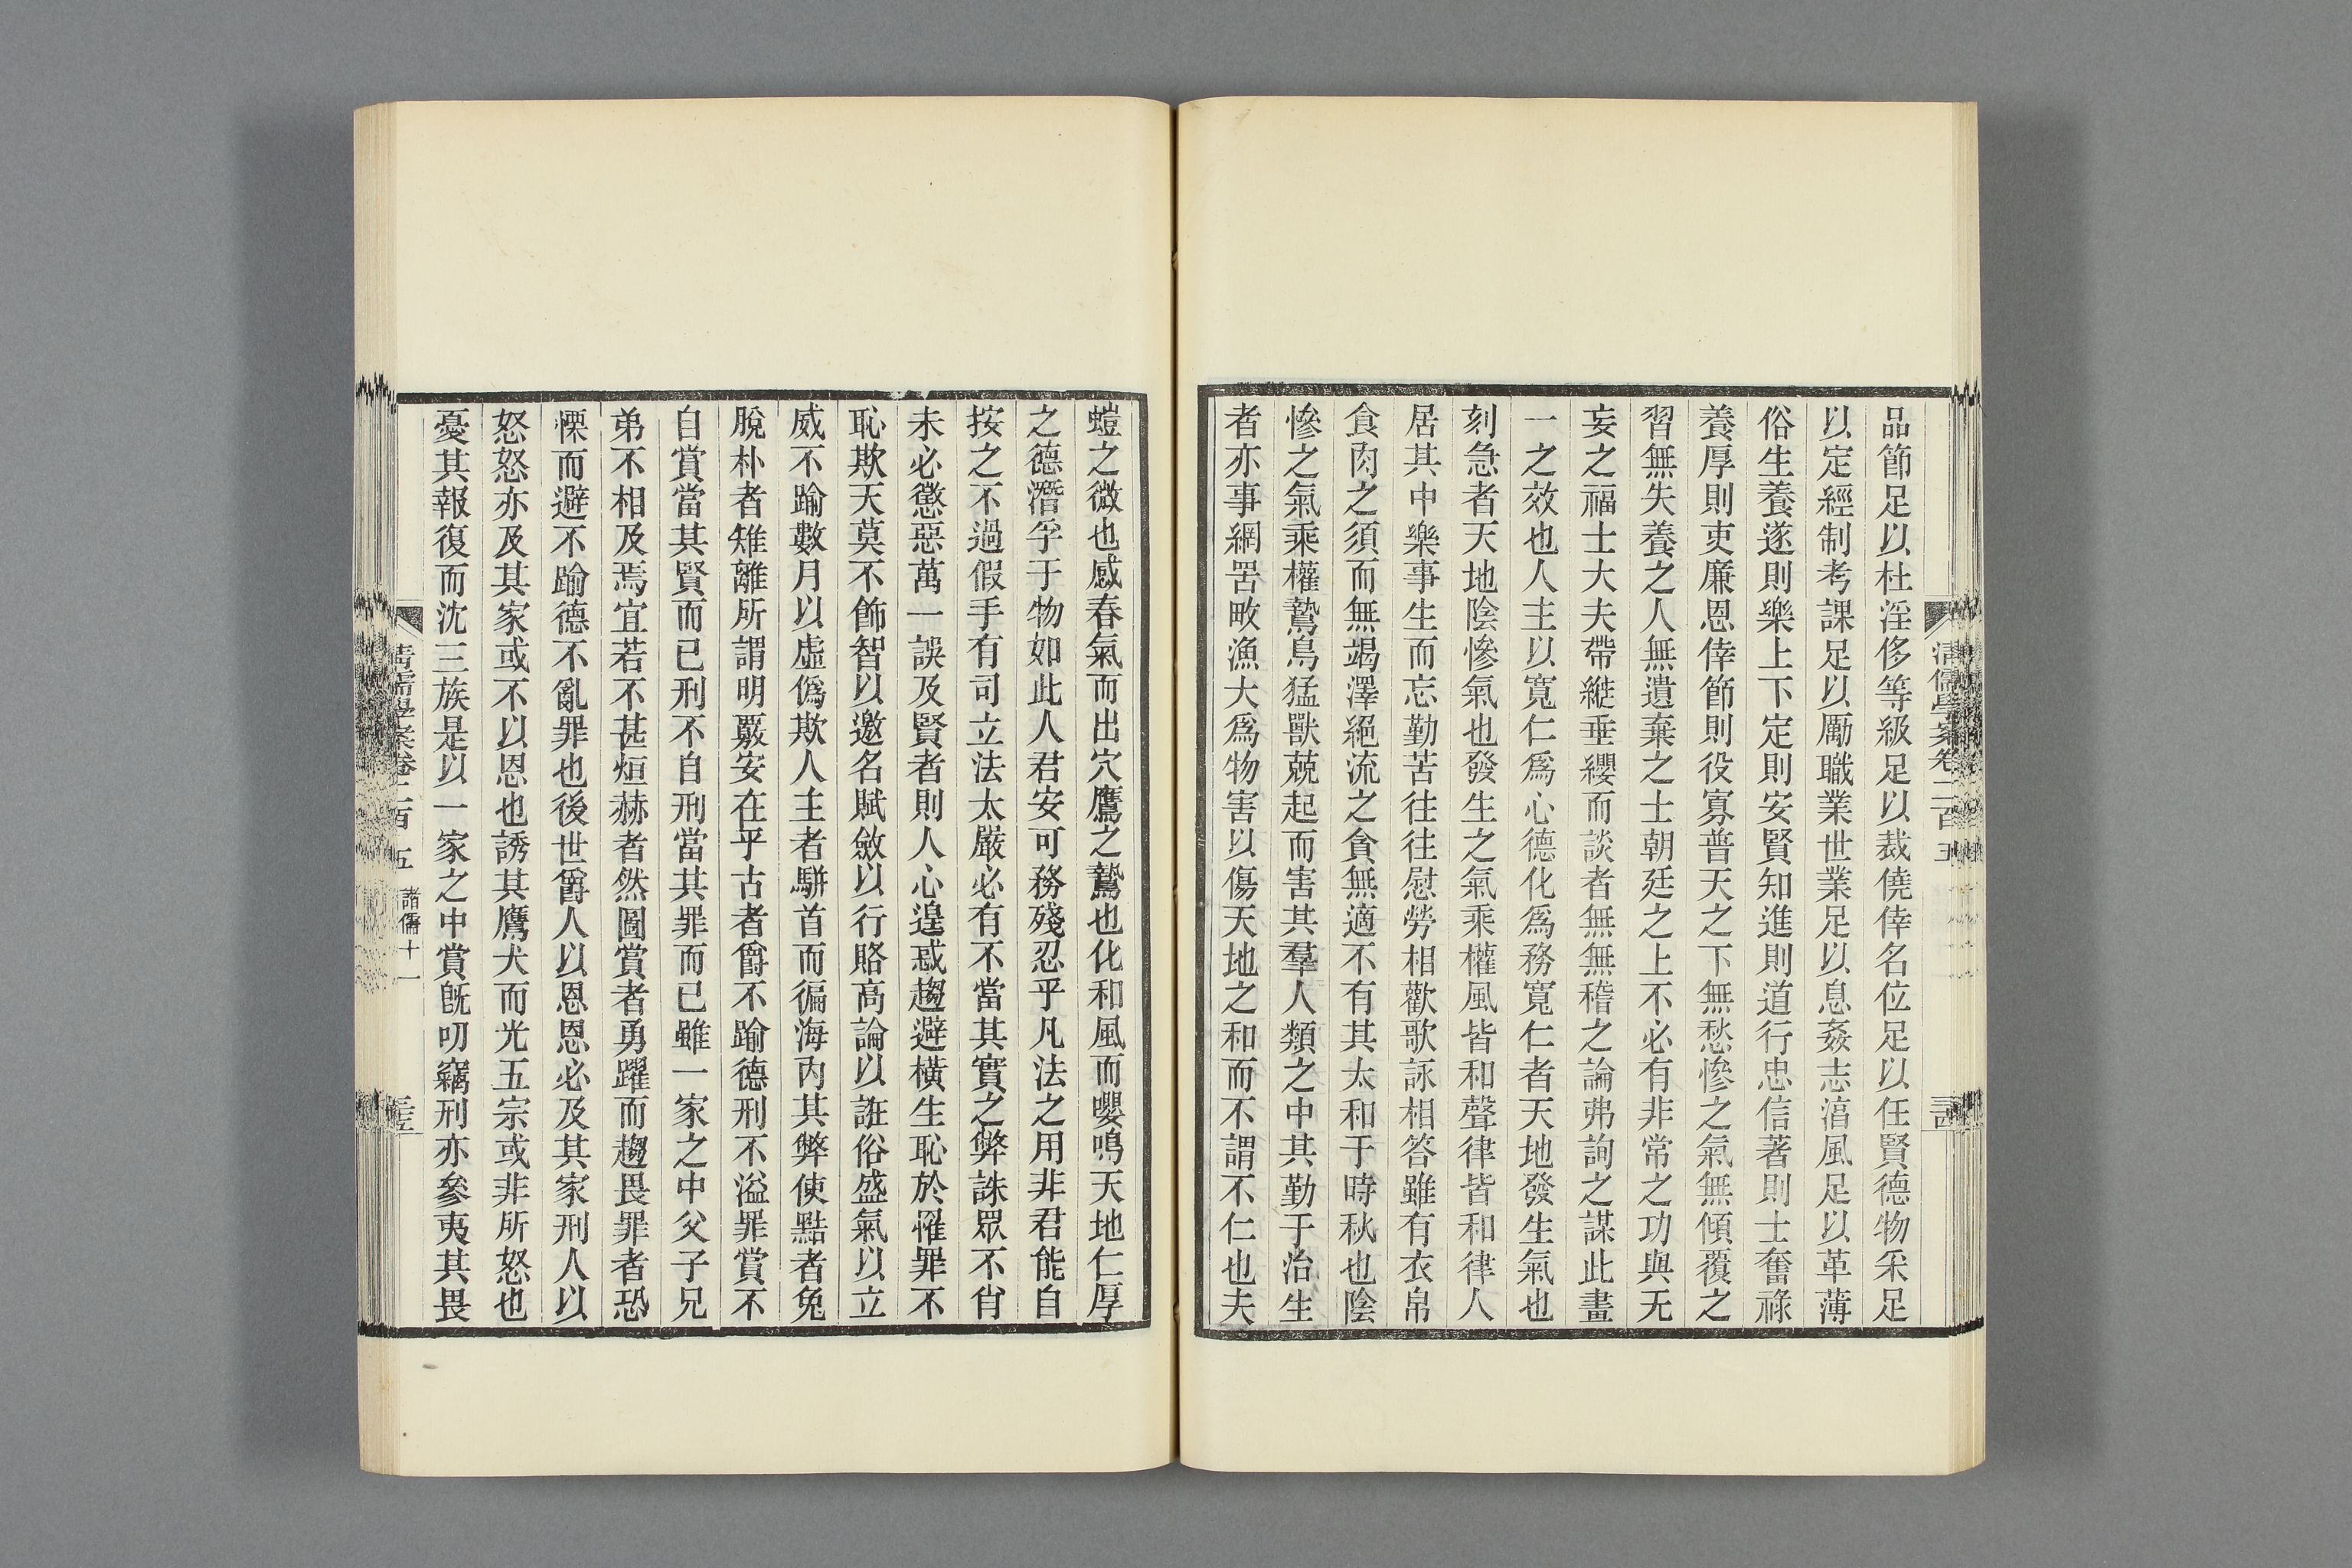 清儒學案卷二百五
三四
品節足以杜淫侈等級足以裁僥倖名位足以任賢德物采足
以定經制考課足以勵職業世業足以息姦志湻風足以革薄
俗生養遂則樂上下定則安賢知進則道行忠信著則士奮祿
養厚則吏廉恩倖節則役寡普天之下無愁慘之氣無傾覆之
習無失養之人無遺棄之士朝廷之上不必有非常之功與无
妄之福士大夫帶縰垂纓而談者無無稽之論弗詢之謀此畫
一之效也人主以寬仁爲心德化爲務寬仁者天地發生氣也
刻急者天地陰慘氣也發生之氣乘權風皆和聲律皆和律人
居其中樂事生而忘勤苦往往慰勞相歡歌詠相答雖有衣帛
食肉之須而無竭澤絕流之貪無適不有其太和于時秋也陰
慘之氣乘權鷙鳥猛獸兢起而害其羣人類之中其勤于治生
者亦事網罟畋漁大爲物害以傷天地之和而不謂不仁也夫
螘之微也感春氣而出穴鷹之鷙也化和風而嚶鳴天地仁厚
之德潛孚于物如此人君安可務殘忍乎凡法之用非君能自
按之不過假手有司立法太嚴必有不當其實之弊誅眾不肖
未必懲惡萬一誤及賢者則人心遑惑趨避橫生恥於罹罪不
恥欺天莫不飾智以邀名賦斂以行賂高論以誑俗盛氣以立
威不踰數月以虛僞欺人主者駢首而徧海內其弊使黠者兔
脫朴者雉離所謂明覈安在乎古者爵不踰德刑不溢罪賞不
自賞當其賢而已刑不自刑當其罪而已雖一家之中父子兄
弟不相及焉宜若不甚烜赫者然圖賞者勇躍而趨畏罪者恐
慄而避不踰德不亂罪也後世爵人以恩恩必及其家刑人以
怒怒亦及其家或不以恩也誘其鷹犬而光五宗或非所怒也
憂其報復而沈三族是以一家之中賞旣叨竊刑亦參夷其畏
清儒學案卷二百五
諸儒十一
三五